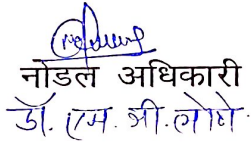 नोडल अधिकारी
डॉ. एम. श्री. लोधे